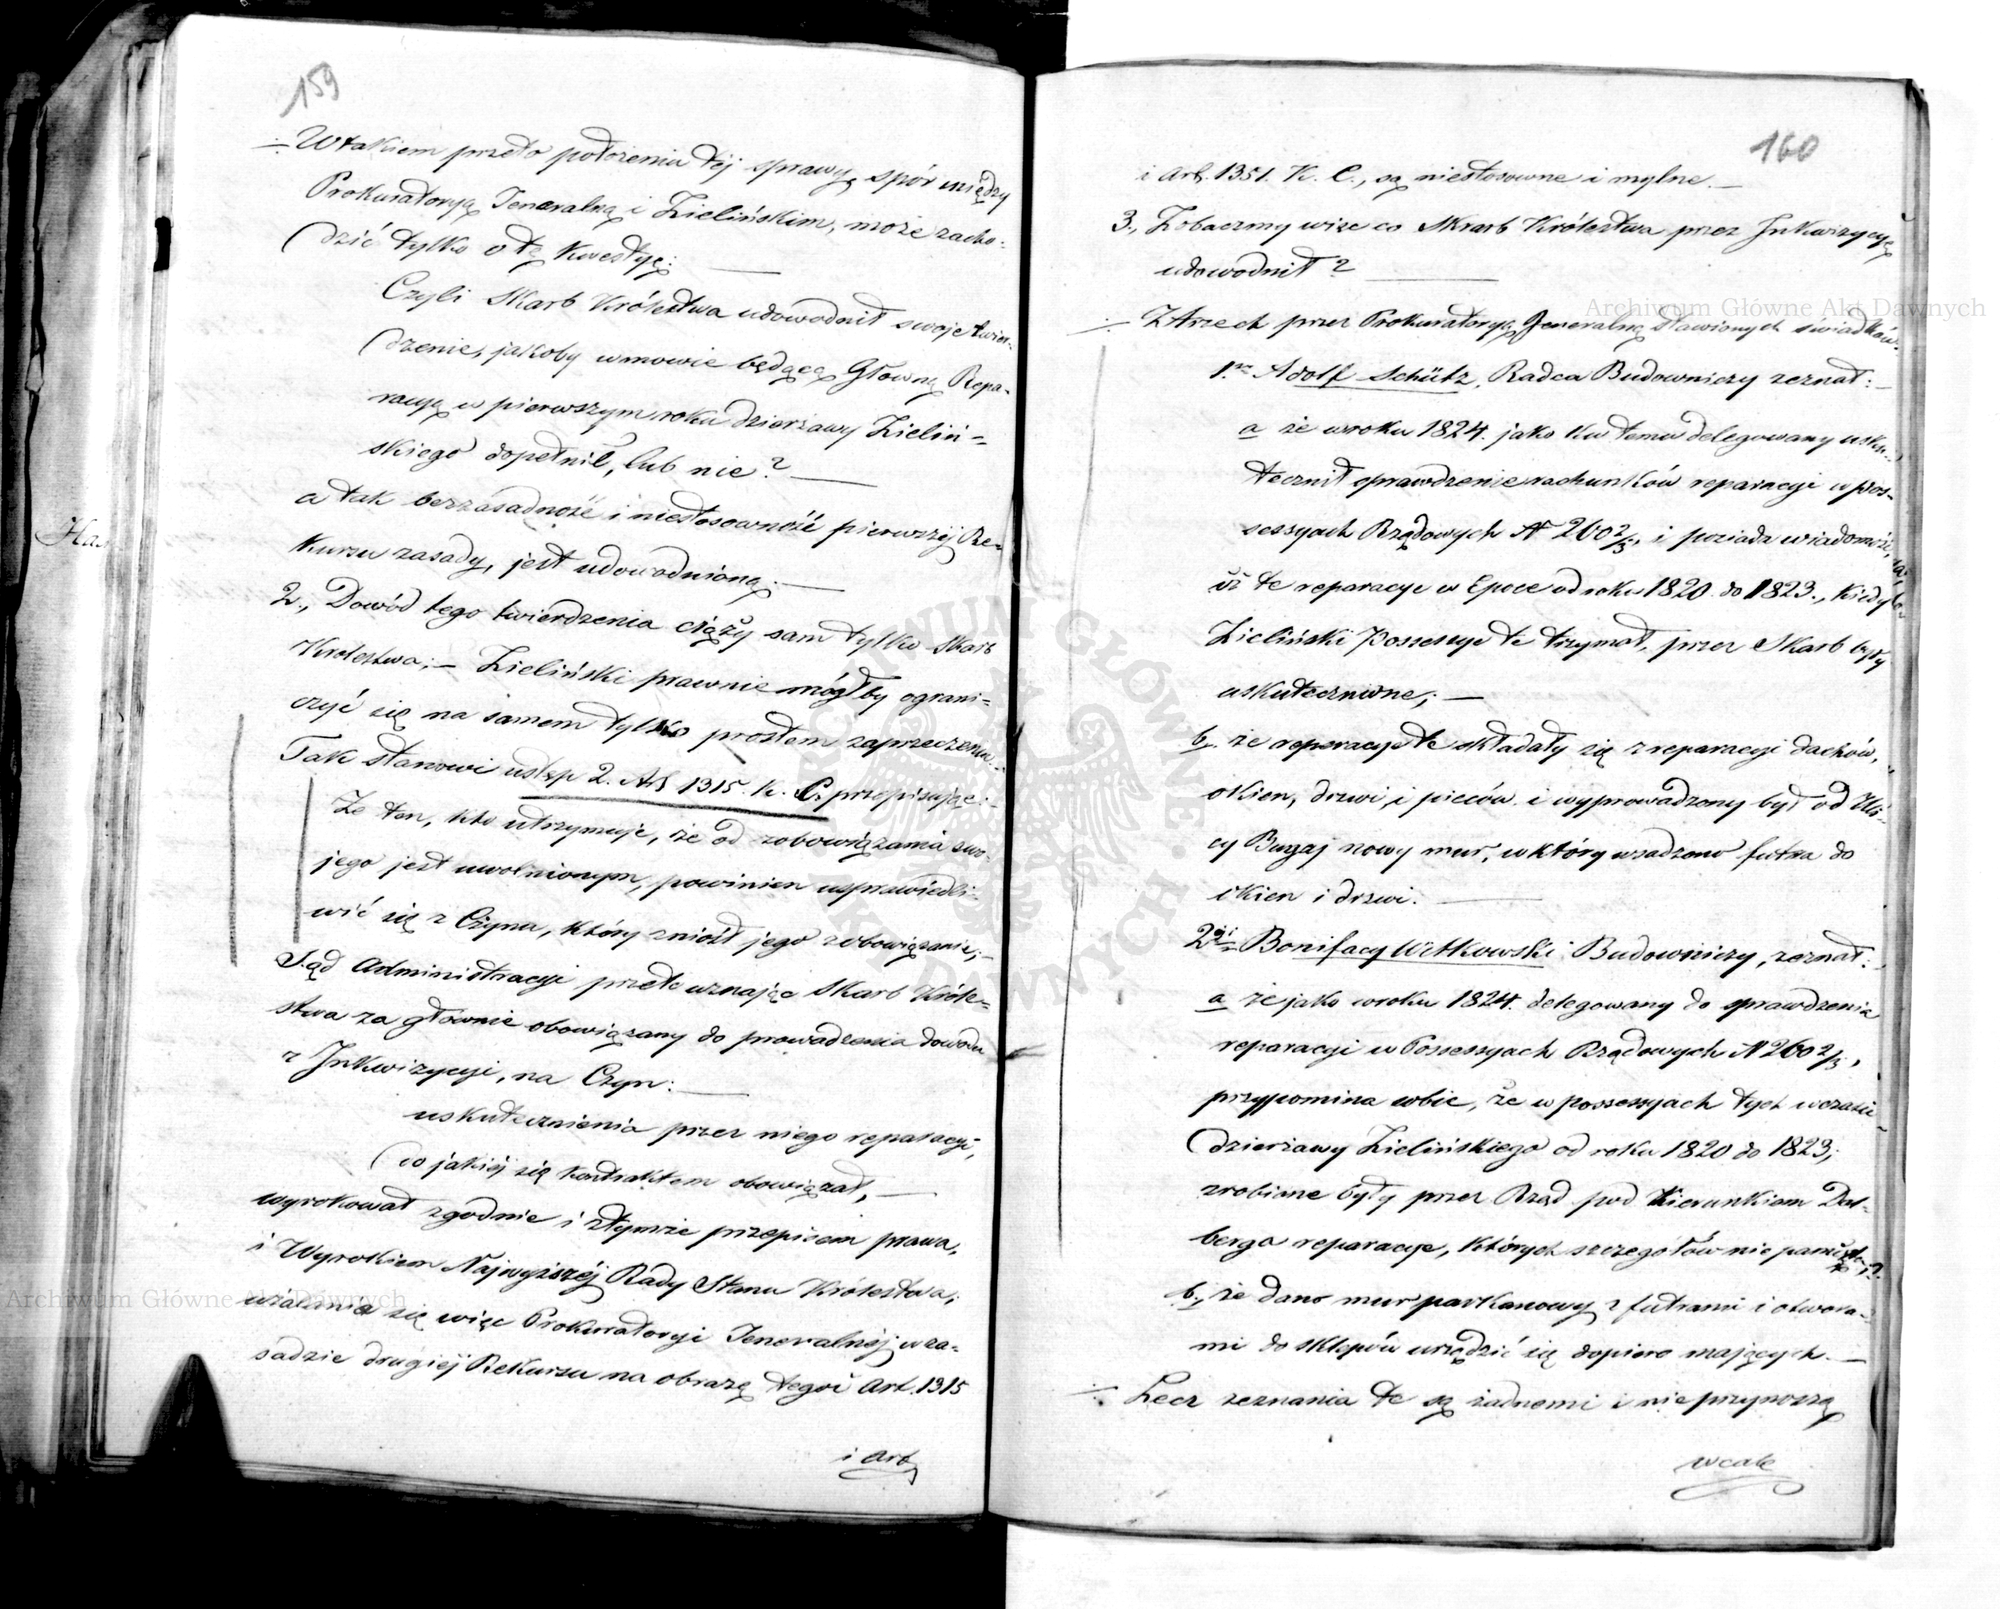 159
÷ W takiem przeto położeniu téj sprawy, spór między
Prokuratoryą Jeneralną i Zielińskim, może zacho-
dzić tylko o tę kwestyę:
Czyli Skarb Królestwa udowodnił swoje twier-
dzenie, jakoby w mowie będącą Główną Repa-
racyę w pierwszym roku dzierżawy Zieliń-
skiego dopełnił, lub nie? —
a tak bezzasadność i niestosowność pierwszéj Re-
kursu zasady, jest udowodnioną. —
2., Dowód tego twierdzenia ciąży sam tylko Skarb
Królestwa; — Zieliński prawnie mógłby ograni-
czyć się na samem tylko prostem zaprzeczeniu. —
Tak stanowi ustęp 2. Art 1315. K. C. przepisując: —
Że ten, kto utrzymuje, że od zobowiązania swo-
jego jest uwolnionym, powinien usprawiedli-
wić się z Czynu, który zniósł jego zobowiązanie; —
Sąd Administracyi przeto uznając Skarb Króle-
stwa za głównie obowiązany do prowadzenia dowodu
z Inkwizycyi, na Czyn: —
uskutecznienia przez niego reparacyi,
do jakiéj się kontraktem obowiązał, —
wyrokował zgodnie i z tymże przepisem prawa,
i Wyrokiem Najwyższéj Rady Stanu Królestwa;
użalenie się więc Prokuratoryi Jeneralnéj w za-
sadzie drugiéj Rekursu na obrazę tegoż Art. 1315
i Art
160
i Art. 1351. K. C., są niestosowne i mylne. —
3., Zobaczmy więc co Skarb Królestwa przez Inkwizycyę
udowodnił?
÷ Z trzech przez Prokuratoryą Jeneralną stawionych świadków.
1.sz Adolf Schütz, Radca Budowniczy zeznał: —
a że w roku 1824. jako ku temu delegowany usku-
tecznił sprawdzenie rachunków reparacyi w pos-
sessyach Rządowych N 260 2/3, i posiada wiadomość,
iż te reparacye w Epoce od roku 1820. do 1823., kiedy
Zieliński Possessye te trzymał, przez Skarb były
uskutecznione; —
b. że reparacye te składały się z reparacyi dachów,
okien, drzwi i pieców i wyprowadzony był od Uli-
cy Bugaj nowy mur, w który wsadzono futra do
okien i drzwi. —
2gi Bonifacy Witkowski Budowniczy, zeznał:
a że jako w roku 1824. delegowany do sprawdzenia
reparacyi w Possessyach Rządowych N 260 2/3,
przypomina sobie, że w possessyach tych w czasie
dzierżawy Zielińskiego od roku 1820 do 1823;
zrobione były przez Rząd pod kierunkiem Dal-
berga reparacye, których szczegółów nie pamięta;
b., że dano mur parkanowy z futrami i otwora-
mi do sklepów urządzić się dopiero mających. —
÷ Lecz zeznania te są żadnemi i nie przynoszą
wcale
Archiwum Główne Akt Dawnych
Archiwum Główne Akt Dawnych
ARCHIWUM GŁÓWNE AKT DAWNYCH